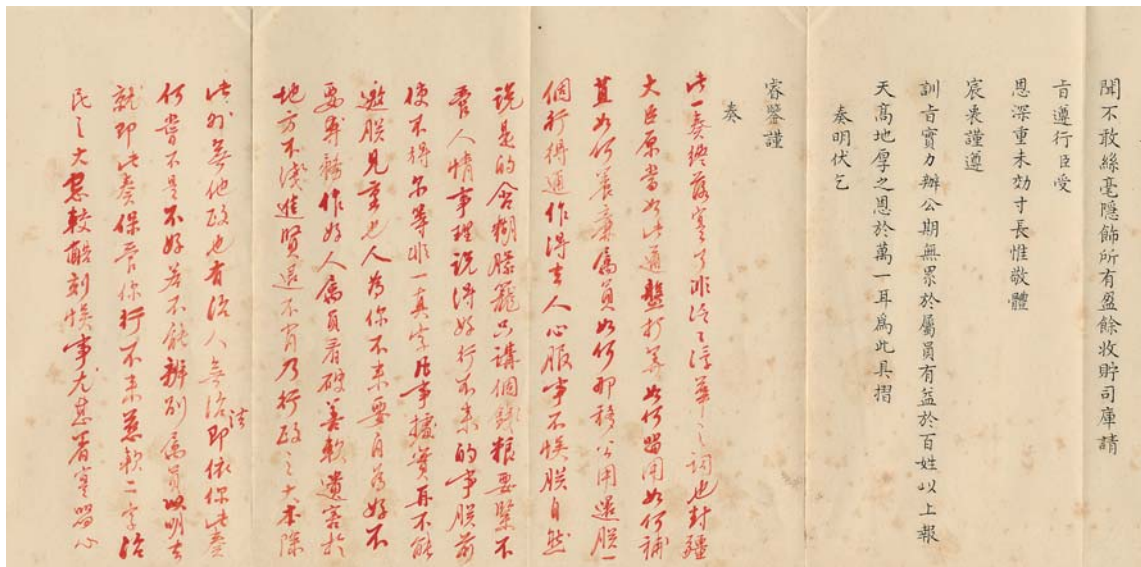 聞不敢絲毫隱飾所有盈餘收貯司庫請
旨遵行臣受
恩深重未効寸長惟敬體
宸衷謹遵
訓旨實力辦公期無累於屬員有益於百姓以上報
天高地厚之恩於萬一耳為此具摺
奏明伏乞
睿鑒謹
奏
此一奏終落實了非從前浮華之詞也封疆
大臣原當如此通盤打算如何留用如何補
苴如何養廉屬員如何那移公用還朕一
個行得通作得去人心服事不悞朕自然
說是的含糊朦籠只講個錢粮要緊不
管人情事理說得好行不來的事朕前
使不得尔等非一真字凡事據實再不能
邀朕見重也人為你不來要自為好不
要尋騎作好人屬員看破善軟遺害於
地方不淺進賢退不肖乃行政之大本除
此外無他政也有治人無治法即依你此奏
何嘗不是不好若不能辨別屬員以明去
就即此奏保管你行不來慈軟二字治
民之大害較酷刻悞事尤甚着實留心